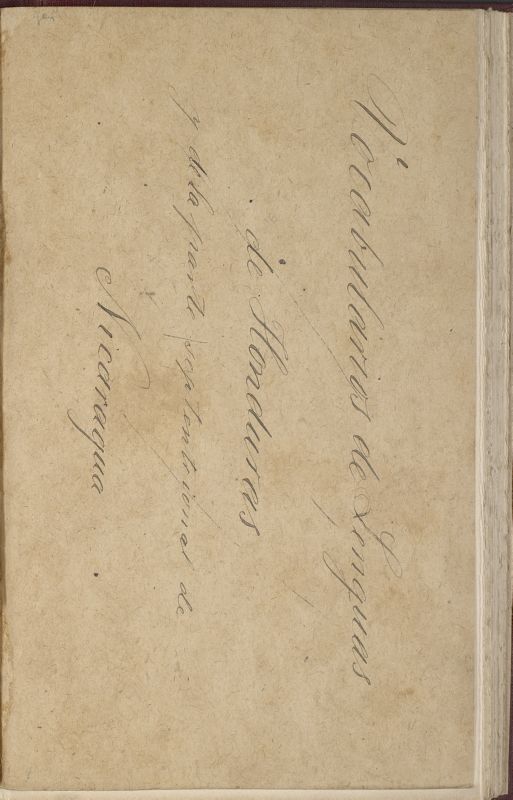 Vocabularios de Lenguas
de Honduras
y de la parte septentrional de
Nicaragua